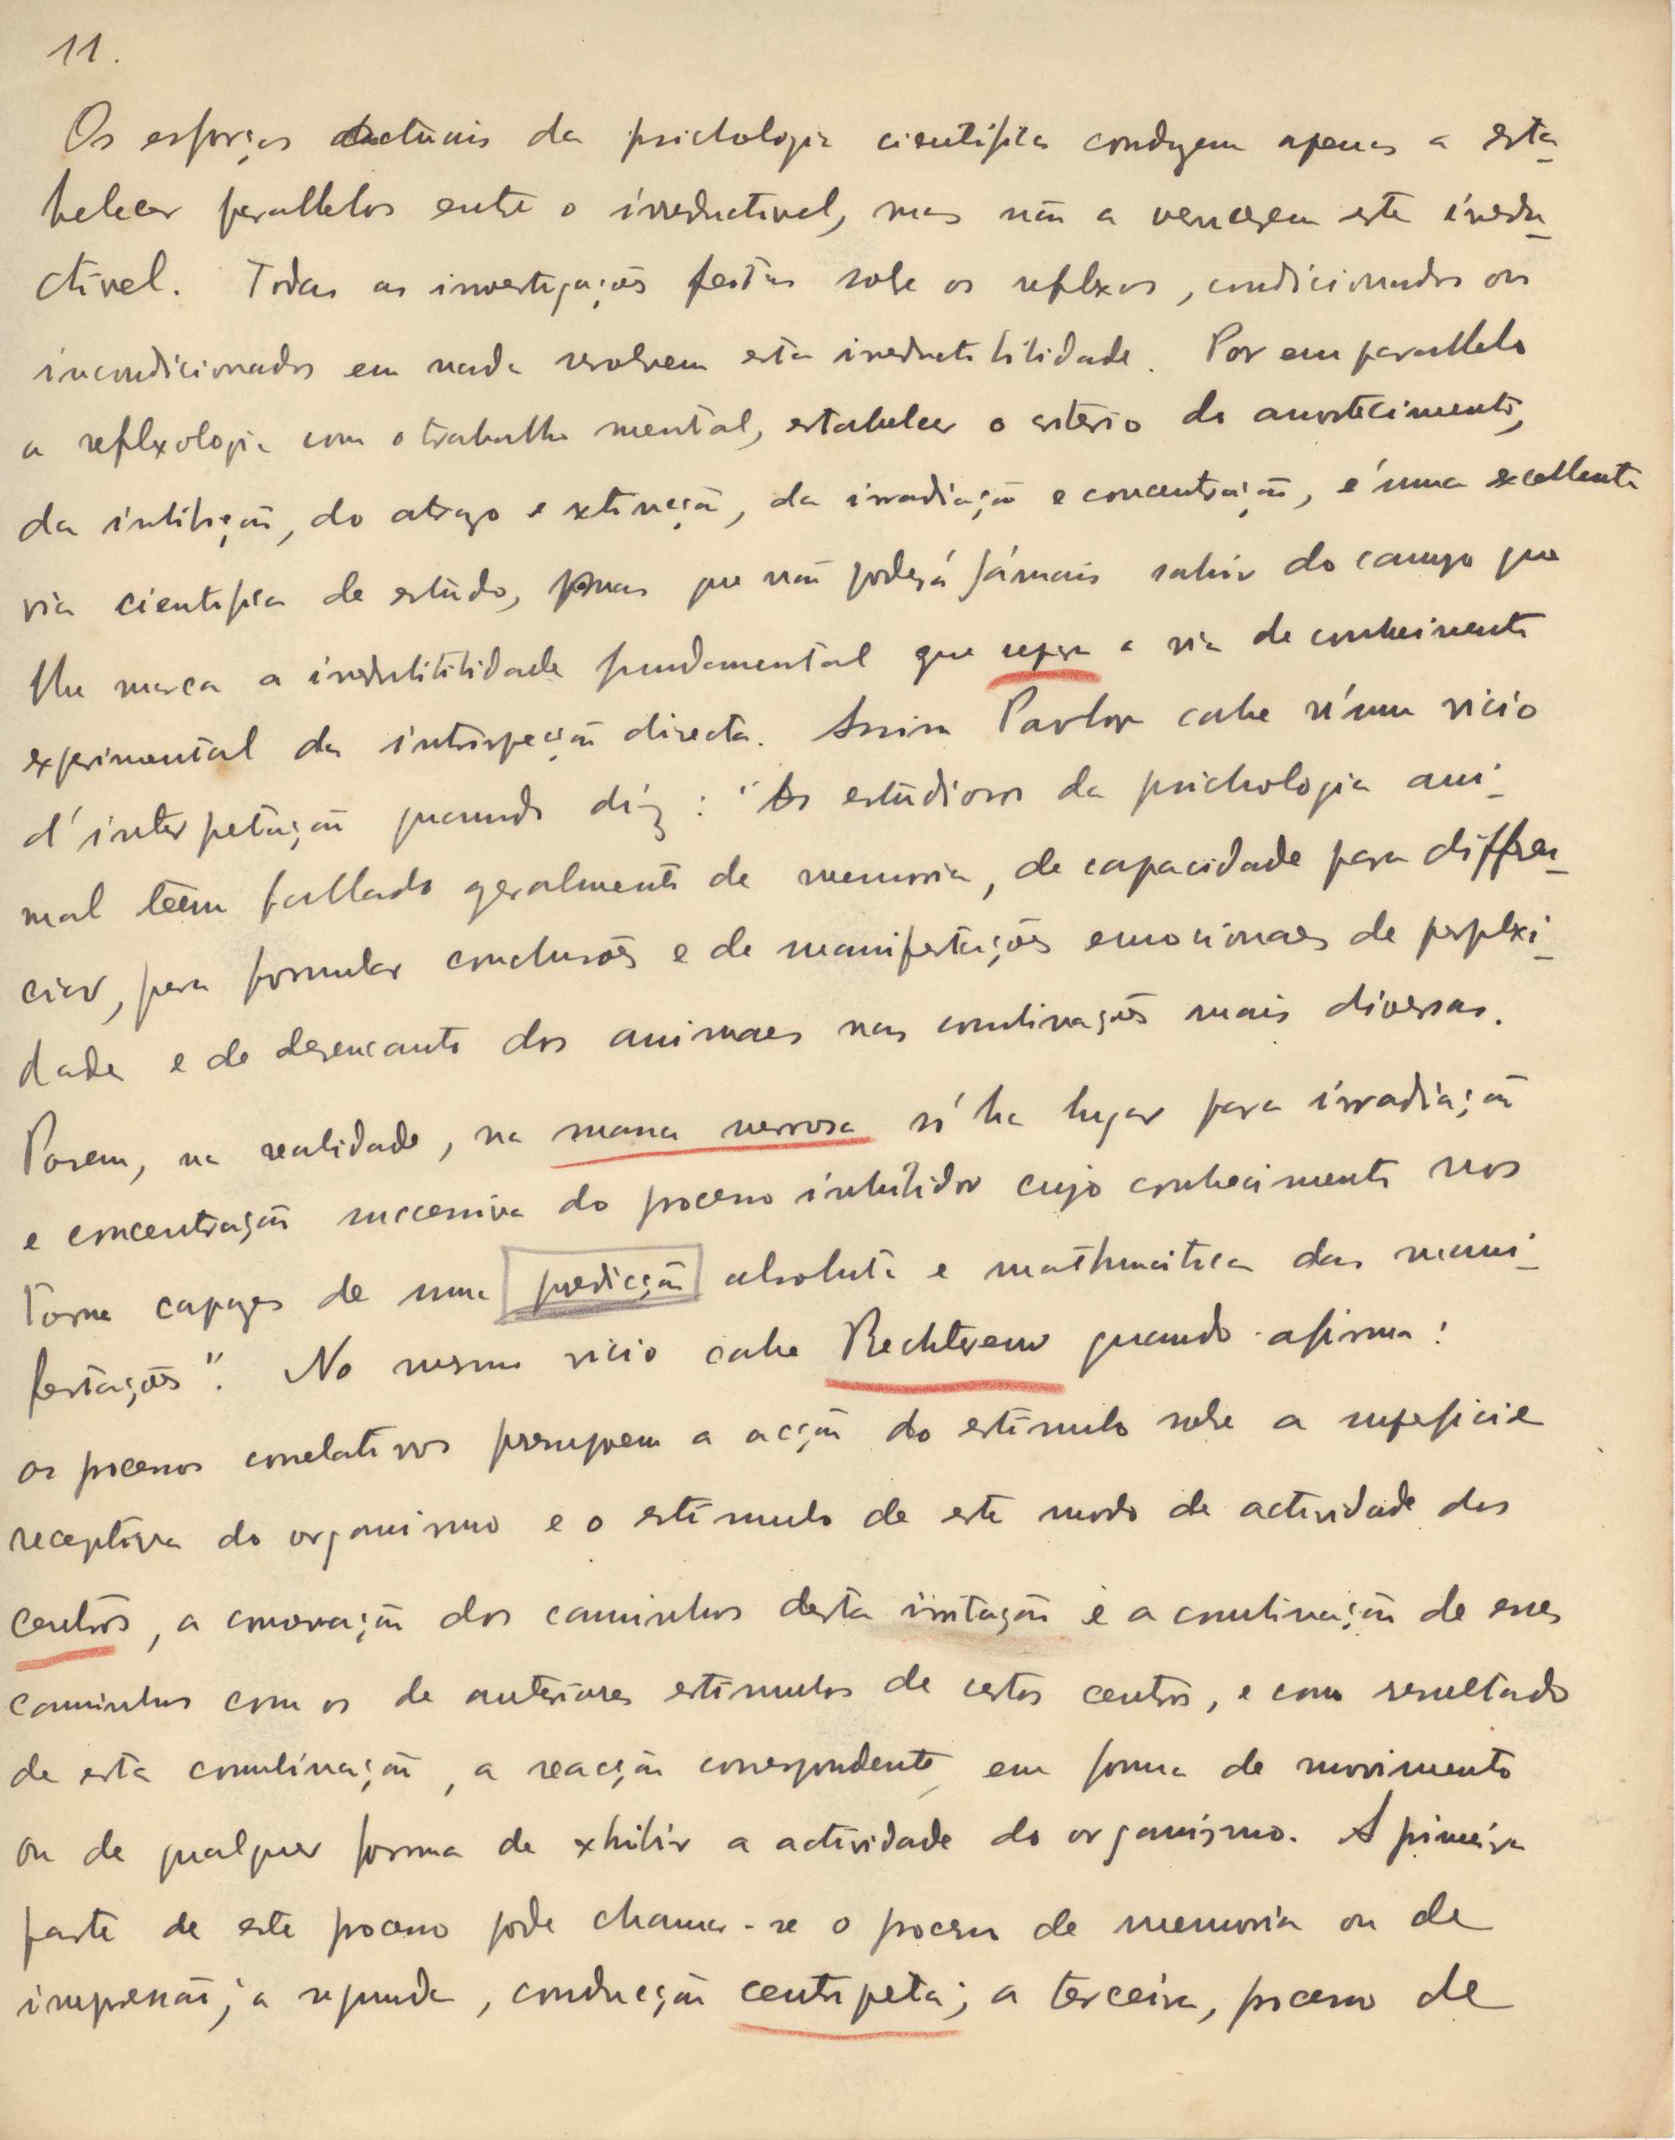 11.
Os esforços actuais da psichologia cientifica conduzem apenas a esta-
belecer parallelos entre o irreductivel, mas não a vencerem este irredu-
ctivel. Todas as investigações feitas sobre os reflexos, condicionados ou
incondicionados em nada resolvem esta irreductibilidade. Por em parallelo
a reflexologia com o trabalho mental, estabelecer o criterio do amortecimento,
da inibição, do atrazo e extincção, da irradiação e concentração, é uma excellente
via cientifica de estudo, mas que não poderá jámais sahir do campo que
lhe marca a irredutibilidade fundamental que separa a via de conhecimento
experimental da introspecção directa. Assim Pavlov cahe n'um vicio
d'interpretação quando diz: "Os estudiosos da psichologia ani-
mal teem fallado geralmente de memoria, de capacidade para differen-
ciar, para formular conclusões e de manifestações emocionaes de perplexi-
dade e de desencanto dos animaes nas combinações mais diversas.
Porem, na realidade, na massa nervosa só ha lugar para irradiação
e concentração successiva do processo inhibidor cujo conhecimento nos
torna capazes de uma predicção absoluta e mathmatica das mani-
festações". No mesmo vicio cahe Bechterew quando afirma:
os processos correlativos presuppoem a acção do estimulo sobre a superficie
receptiva do organismo e o estimulo de este modo de actividade dos
centros, a innovação dos caminhos desta irritação e a combinação de esses
caminhos com os de anteriores estimulos de certos centros, e como resultado
de esta combinação, a reacção correspondente em forma de movimento
ou de qualquer forma de exhibir a actividade do organismo. A primeira
parte de este processo pode chamar-se o processo de memoria ou de
impressão; a segunda, conducção centripeta; a terceira, processo de